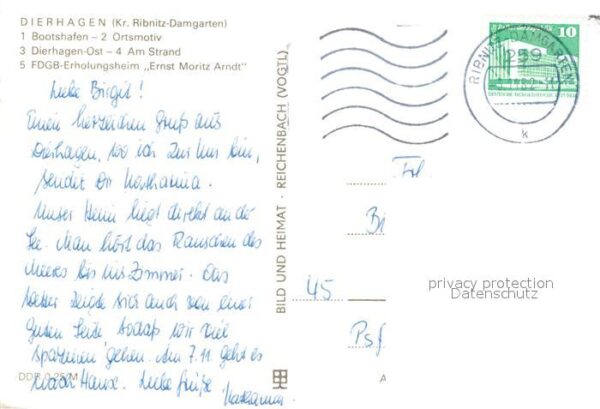 DIERHAGEN (Kr. Ribnitz-Damgarten)
1 Bootshafen – 2 Ortsmotiv
3 Dierhagen-Ost – 4 Am Strand
5 FDGB-Erholungsheim „Ernst Moritz Arndt"
Liebe Birgit!
Einen herzlichen Gruß aus
Dierhagen, wo ich zur Kur bin,
sendet Dir Katharina.
Unser Heim liegt direkt an der
See. Man hört das Rauschen des
Meeres bis ins Zimmer. Das
Wetter zeigte sich auch von einer
guten Seite sodaß wir viel
spazieren gehen. Am 7.11. geht es
wieder Hause. Liebe Grüße Katharina
DDR 0,25 M
BILD UND HEIMAT · REICHENBACH (VOGTL)
RIBNITZ-DAMGARTEN
259
k
10
Frl
Bi
45
Psf
A
privacy protection
Datenschutz